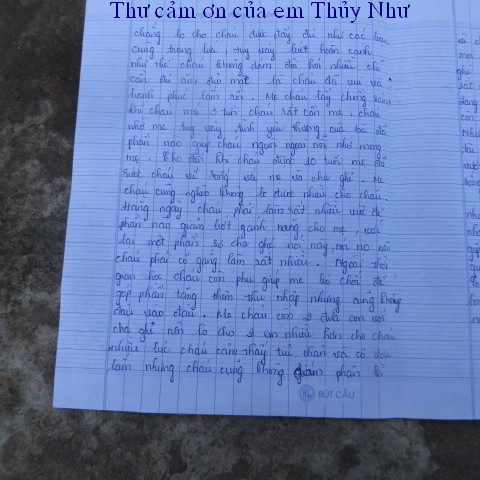 Thư cảm ơn của em Thủy Như
chẳng lo cho cháu được đầy đủ như các bạn
cùng trang lứa, tuy vậy biết hoàn cảnh
như thế cháu không dám đòi hỏi nhiều chỉ
cần đủ ăn, đủ mặt là cháu đã vui và
hạnh phúc lắm rồi. Mẹ cháu lấy chồng
khi cháu mới 3 tuổi cháu rất cần mẹ, cháu
nhớ mẹ tuy vậy, tình yêu thương của bà đã
phần nào giúp cháu người ngoại nỗi nhớ mong
mẹ. Cho đến khi cháu được 10 tuổi mẹ đã
rước cháu về sống với mẹ và cha ghẻ. Mẹ
cháu cũng nghèo không lo được nhiều cho cháu.
Hằng ngày cháu phải làm rất nhiều việc để
phần nào giảm bớt gánh nặng cho mẹ, với
lại một phần sợ cha ghẻ nói này, nói nọ nên
cháu phải cố gắng làm rất nhiều. Ngoài thời
gian học cháu còn phụ giúp mẹ bó chổi để
góp phần tăng thêm thu nhập nhưng cũng không
đâu vào đâu. Mẹ cháu còn 2 đứa con với
cha ghẻ nên lo cho 2 em nhiều hơn cho cháu
nhiều lúc cháu cảm thấy tủi thân và cô đơn
lắm nhưng cháu cũng không dám phân bì
BÚT CÂU